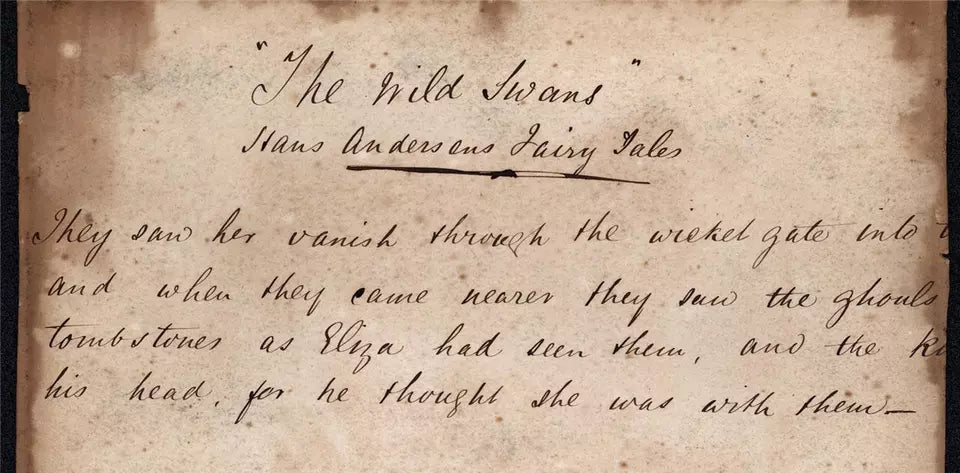 "The Wild Swans"
Hans Andersens Fairy Tales
They saw her vanish through the wicket gate into
and when they came nearer they saw the ghouls
tombstones as Eliza had seen them, and the
his head, for he thought she was with them—